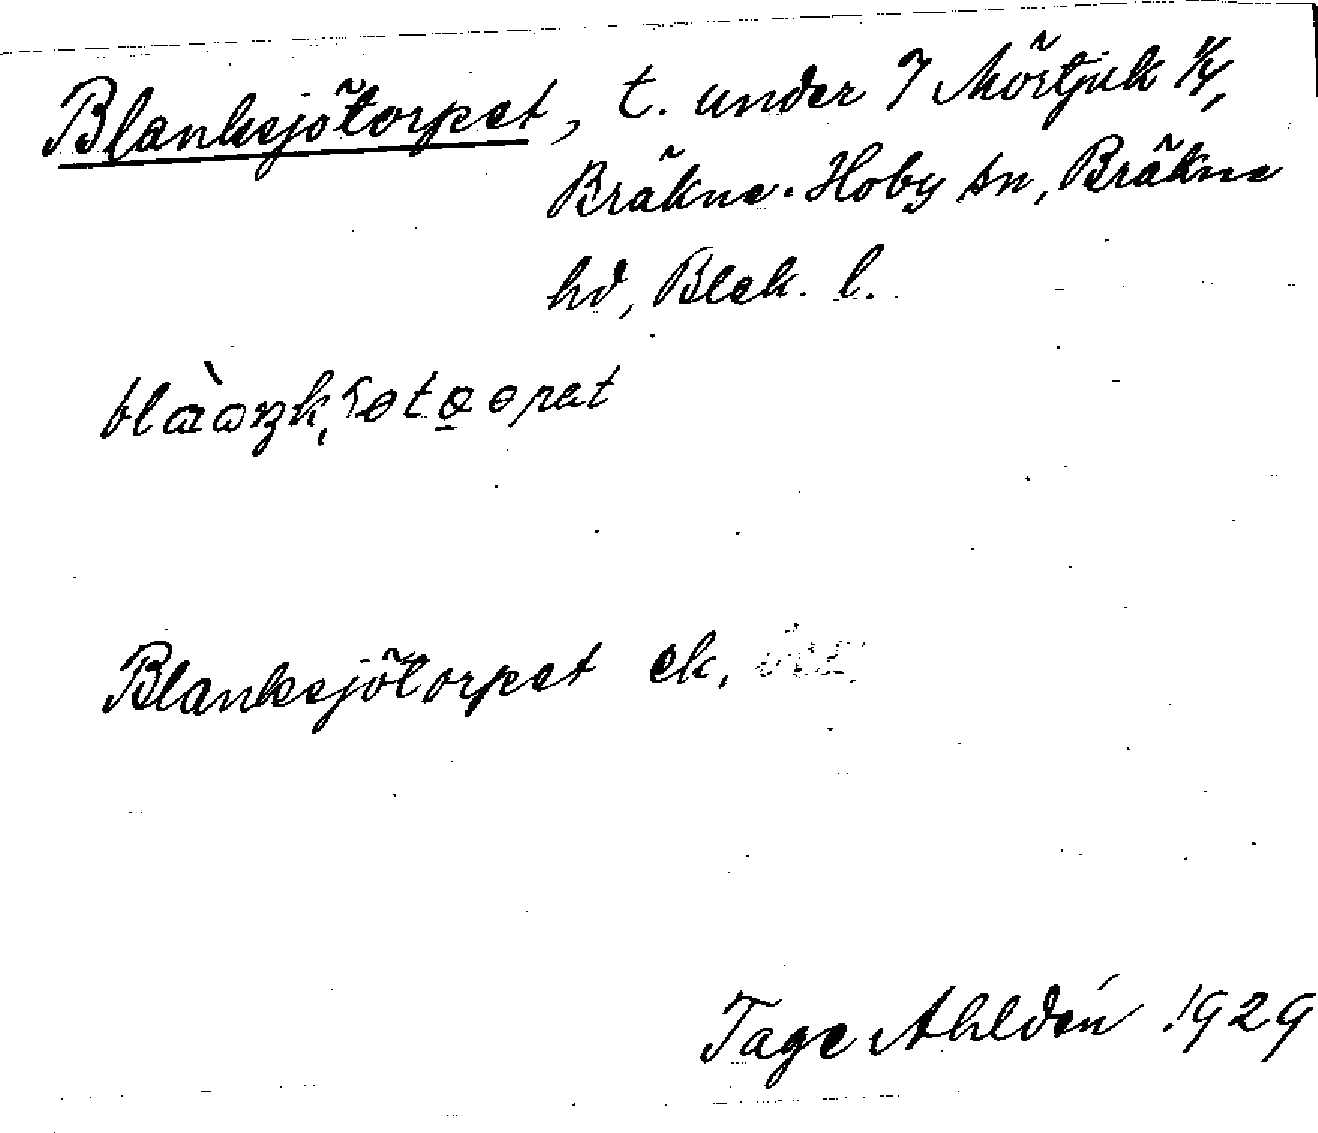 Blanksjötorpet, t. under 7 Mörtjuk 1/4,
Bräkne-Hoby sn, Bräkne
hd, Blek. l.
Blanksjötorpet ek.
Tage Ahldén 1929